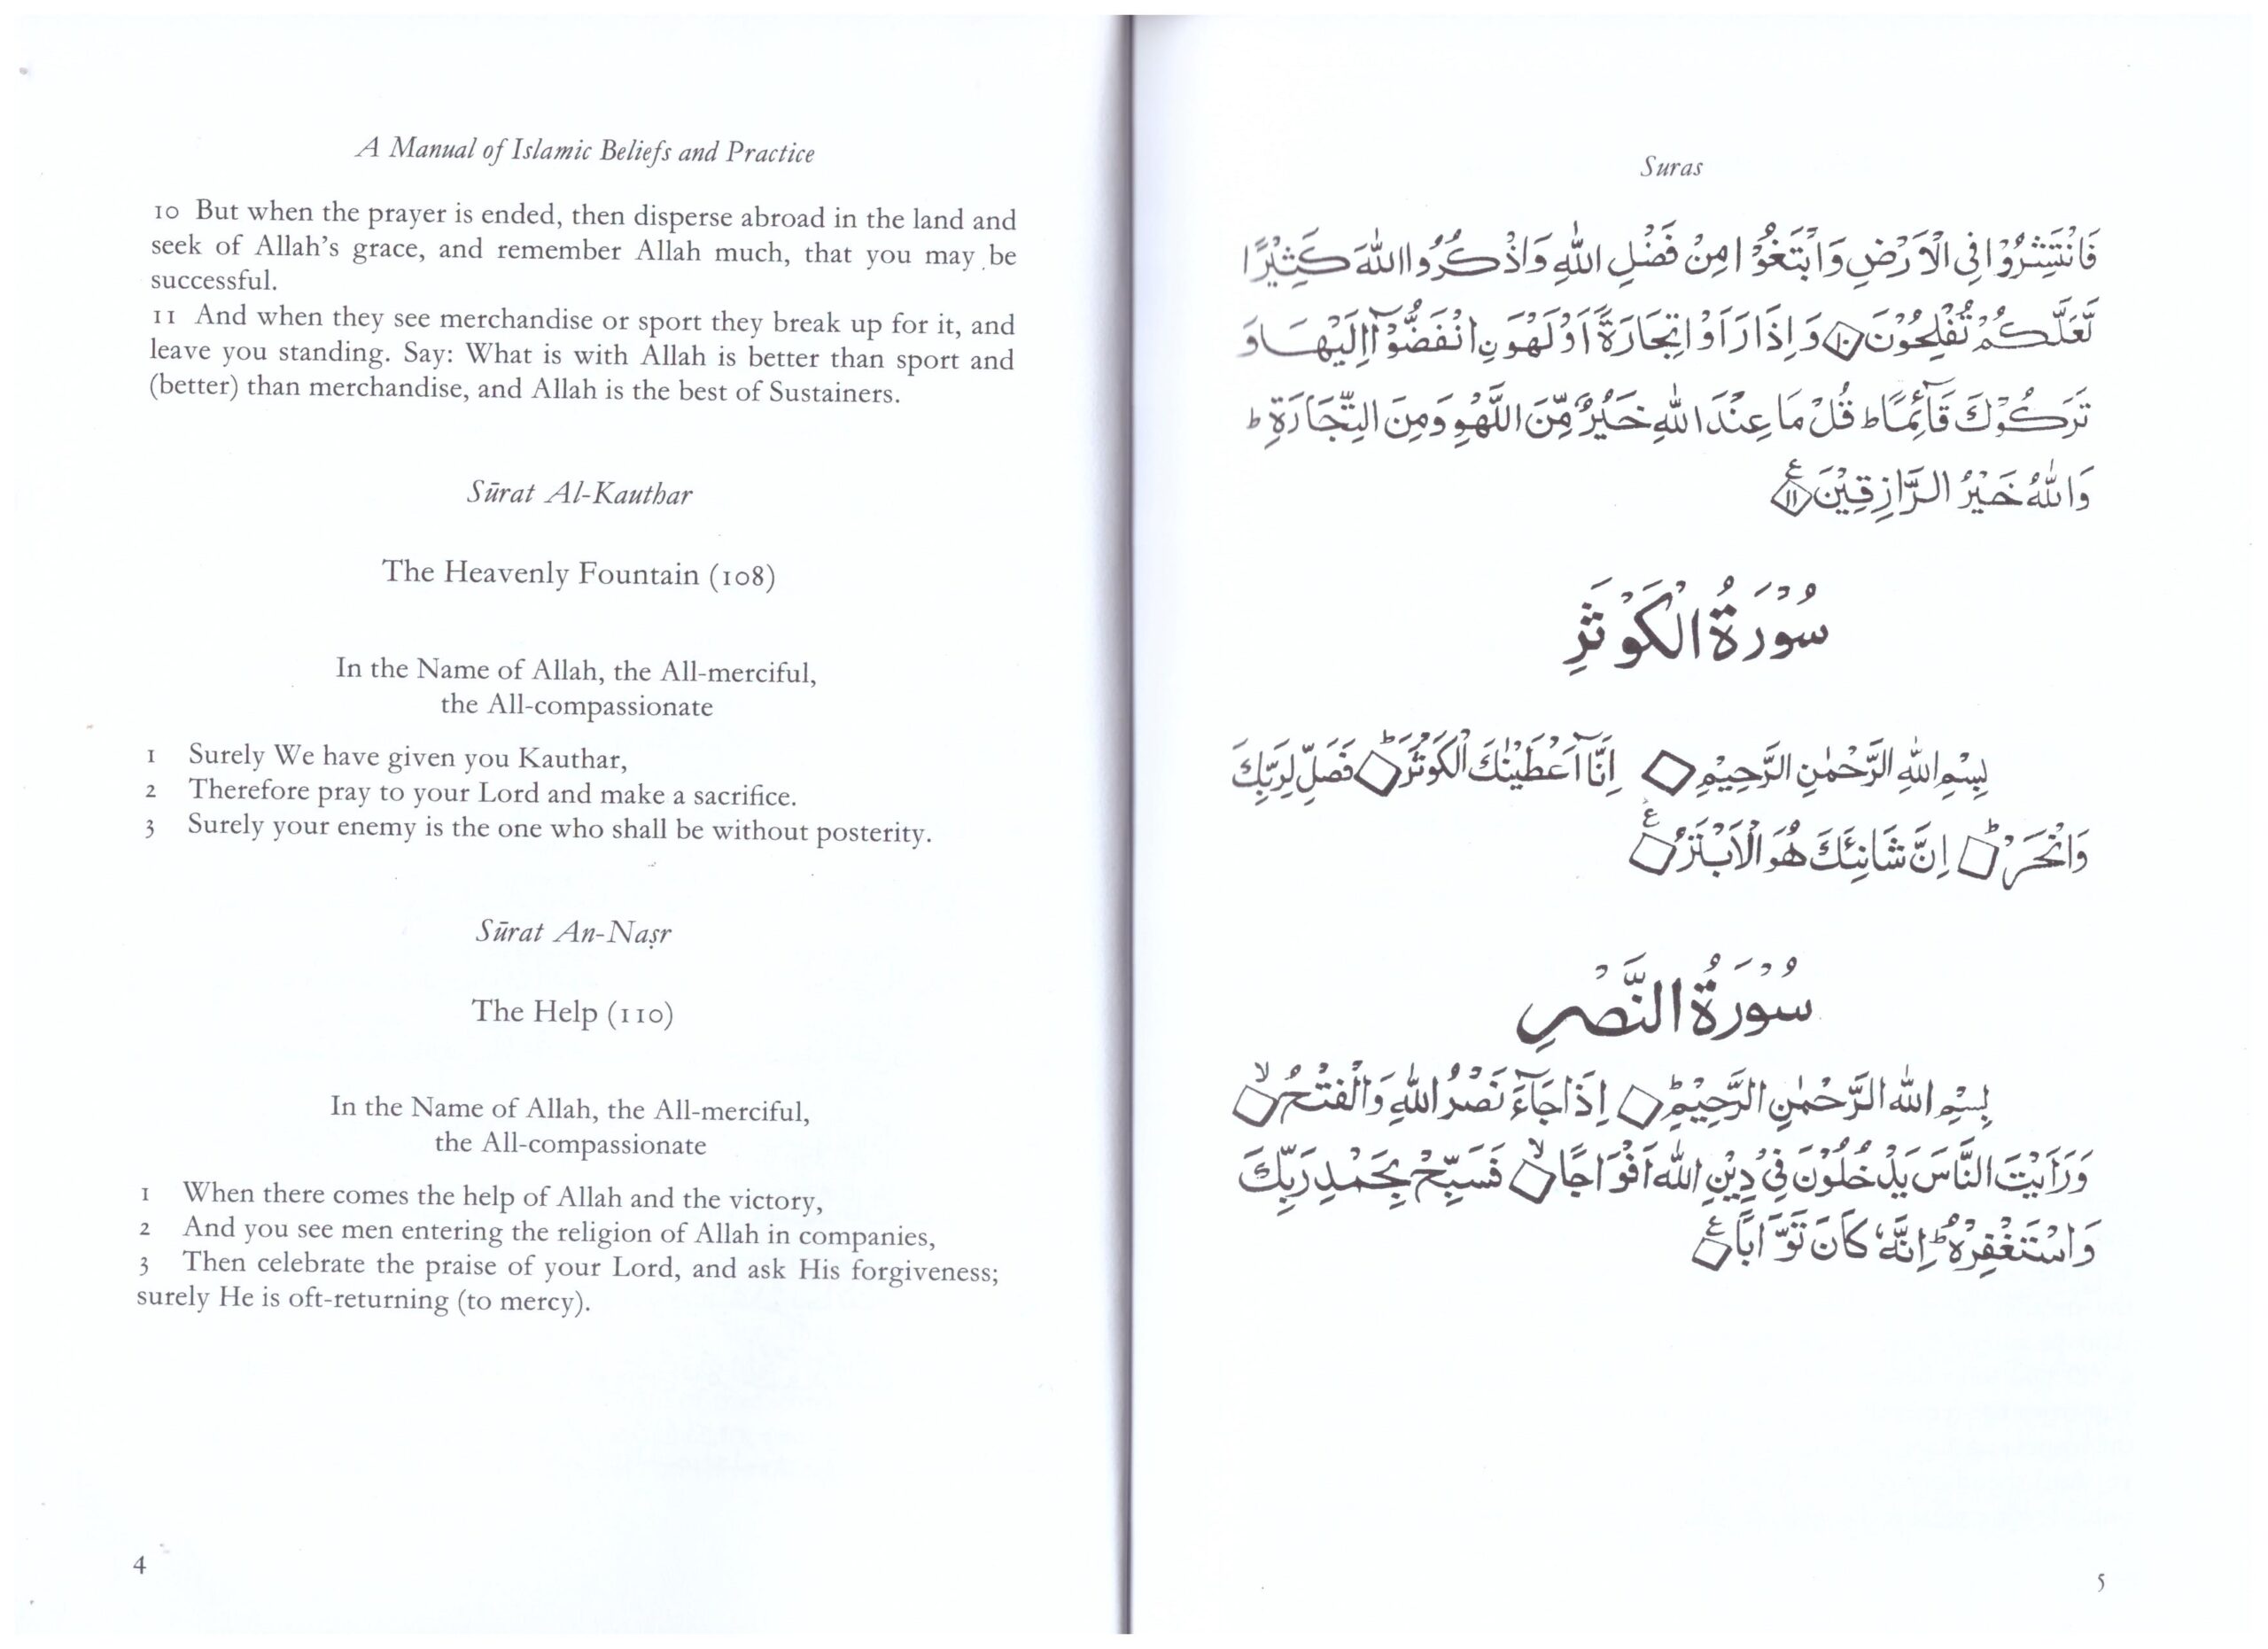 A Manual of Islamic Beliefs and Practice
10 But when the prayer is ended, then disperse abroad in the land and
seek of Allah's grace, and remember Allah much, that you may be
successful.
11 And when they see merchandise or sport they break up for it, and
leave you standing. Say: What is with Allah is better than sport and
(better) than merchandise, and Allah is the best of Sustainers.
Sūrat Al-Kauthar
The Heavenly Fountain (108)
In the Name of Allah, the All-merciful,
the All-compassionate
1 Surely We have given you Kauthar,
2 Therefore pray to your Lord and make a sacrifice.
3 Surely your enemy is the one who shall be without posterity.
Sūrat An-Naṣr
The Help (110)
In the Name of Allah, the All-merciful,
the All-compassionate
1 When there comes the help of Allah and the victory,
2 And you see men entering the religion of Allah in companies,
3 Then celebrate the praise of your Lord, and ask His forgiveness;
surely He is oft-returning (to mercy).
4
Suras
فَانْتَشِرُوْا فِى الْاَرْضِ وَابْتَغُوْا مِنْ فَضْلِ اللّٰهِ وَاذْكُرُوا اللّٰهَ كَثِيْرًا
لَّعَلَّكُمْ تُفْلِحُوْنَ ۱۰ وَاِذَا رَاَوْا تِجَارَةً اَوْ لَهْوَنِ انْفَضُّوْٓا اِلَيْهَا وَ
تَرَكُوْكَ قَآئِمًا ط قُلْ مَا عِنْدَ اللّٰهِ خَيْرٌ مِّنَ اللَّهْوِ وَمِنَ التِّجَارَةِ ط
وَاللّٰهُ خَيْرُ الرَّازِقِيْنَ ۱۱ ع
سُوْرَةُ الْكَوْثَرِ
بِسْمِ اللّٰهِ الرَّحْمٰنِ الرَّحِيْمِ ◇ اِنَّآ اَعْطَيْنٰكَ الْكَوْثَرَ ◇ ط فَصَلِّ لِرَبِّكَ
وَانْحَرْ ◇ ط اِنَّ شَانِئَكَ هُوَ الْاَبْتَرُ ◇ ع
سُوْرَةُ النَّصْرِ
بِسْمِ اللّٰهِ الرَّحْمٰنِ الرَّحِيْمِ ◇ ط اِذَا جَآءَ نَصْرُ اللّٰهِ وَالْفَتْحُ ◇ لا
وَرَاَيْتَ النَّاسَ يَدْخُلُوْنَ فِىْ دِيْنِ اللّٰهِ اَفْوَاجًا ◇ لا فَسَبِّحْ بِحَمْدِ رَبِّكَ
وَاسْتَغْفِرْهُ ط اِنَّهٗ كَانَ تَوَّابًا ◇ ع
5